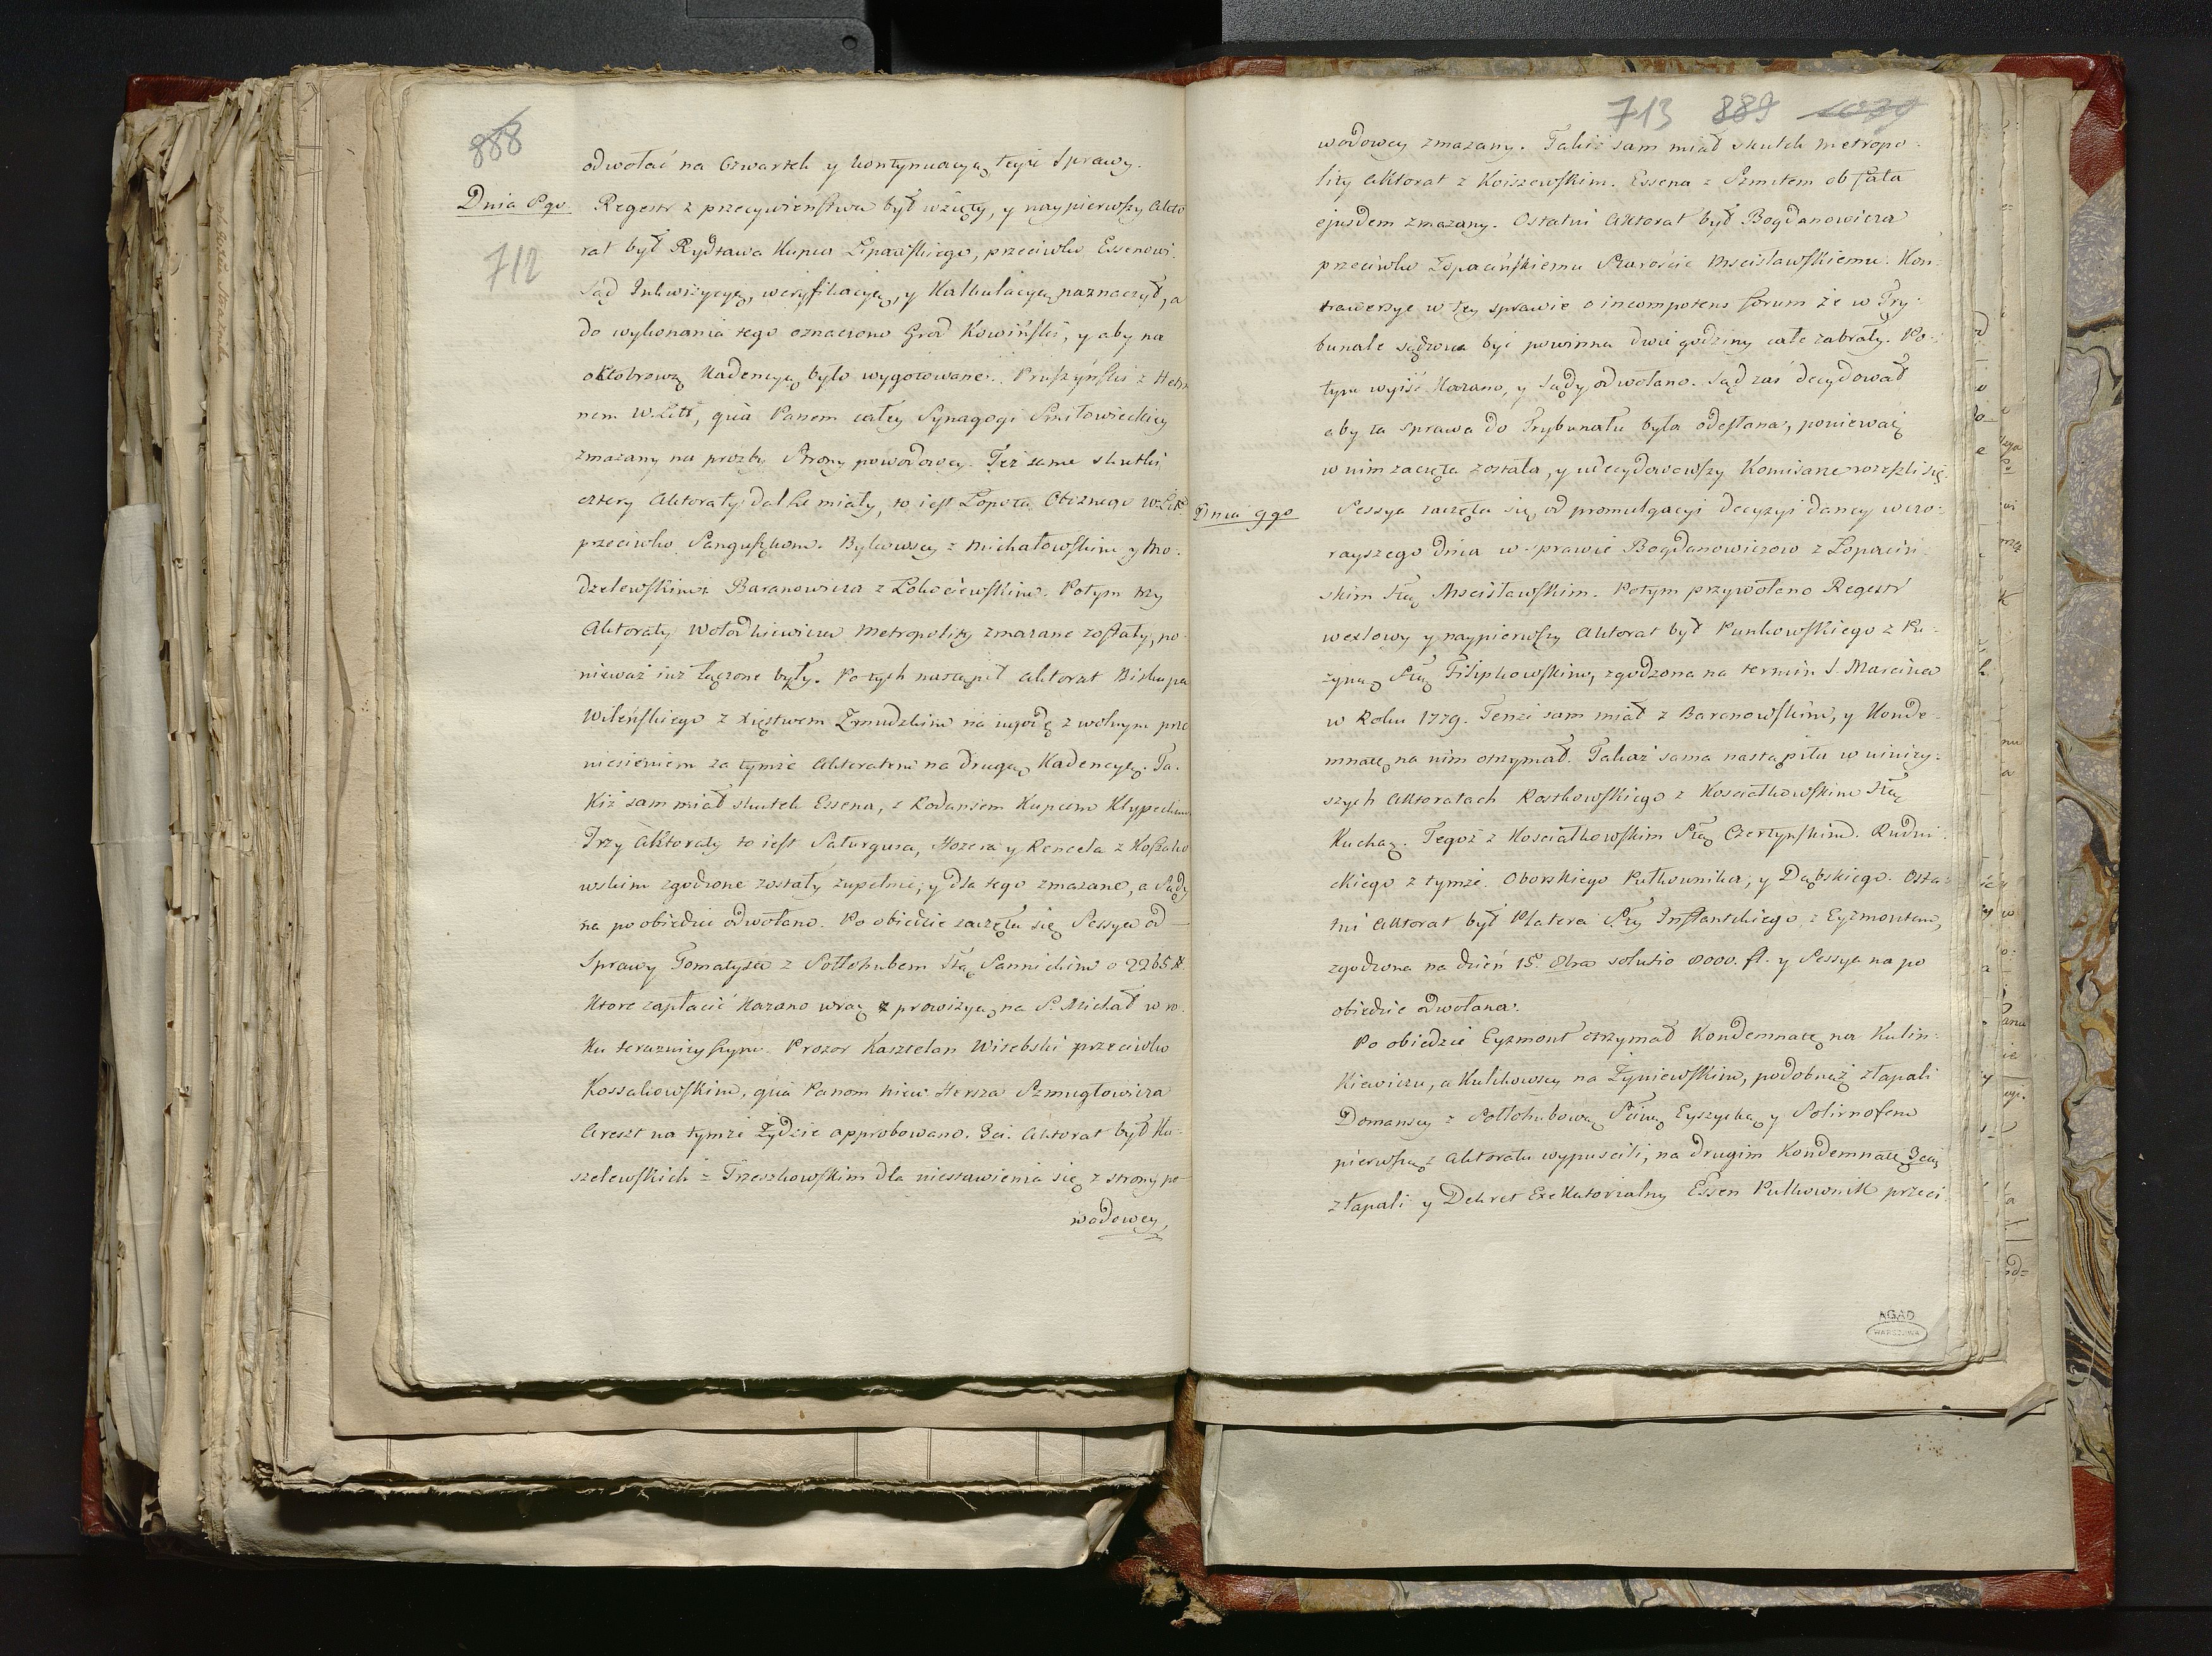 888
712
odwołać na Czwartek y kontynuacyą teyże Sprawy.
Dnia 8go. Regestr z przeciwieństwa był wzięty, y naypierwszy Akto
rat był Rydtawa Kupca Lipawskiego, przeciwko Essenowi.
Sąd Inkwizycyą, weryfikacyą, y Kalkulacyą naznaczył, a
do wykonania tego oznaczono Grod Kowiński, y aby na
oktobrową Kadencyą było wygotowane. Pruszyński z Het
nem W. Litt, quà Panem całey Synagogi Smiłowieckiey
zmazany na prozbę Strony powodowey. Też same skutki
cztery Aktoraty dalsze miały, to iest Łopota Oboznego W. Litt
przeciwko Sanguszkom. Bykowscy z Michałowskim y Mo-
dzelewskim. Baranowicza z Łokuciewskim. Potym trzy
Aktoraty Wołodkiewicza Metropolity zmazane zostały, po-
nieważ iuż łączone były. Po tych nastąpił aktorat Biskupa
Wileńskiego z Xięstwem Zmudzkim na zgodę z wolnym prze
niesieniem za tymże Aktoratem na drugą Kadencyą. Ta-
kiż sam miał skutek Essena, z Rodansem Kupcem Kłypedzkim
Trzy Aktoraty to iest Saturgusa, Hozera y Rencela z Kossako
wskim zgodzone zostały zupełnie, y dla tego zmazane, a Sądy
na po obiedzie odwołano. Po obiedzie zaczęła się Sessya od
Sprawy Tomatysa z Sołłohubem Stą Sannickim o 2265 #
ktore zapłacić kazano wraz z prowizyą na S. Michał w ro-
ku teraznieyszym. Prozor Kasztelan Witebski przeciwko
Kossakowskim, quà Panom niew. Hersza Szmuyłowicza
Areszt na tymże Żydzie approbowano. 3ci. Aktorat był Ku-
szelewskich z Trzeszkowskim dla niestawienia się z strony po
wodowey,
713 889
wodowey zmazany. Takiż sam miał skutek Metropo-
lity Aktorat z Koiszewskim. Essena z Szmitem ob fata
ejusdem zmazany. Ostatni Aktorat był Bogdanowicza
przeciwko Łopacińskiemu Staroście Mscisławskiemu. Kon-
trawersye w tey sprawie o incompetens forum że w Try-
bunale sądzona być powinna dwie godziny całe zabrały. Po-
tym wyiść kazano, y Sądy odwołano. Sąd zaś decydował
aby ta sprawa do Trybunału była odesłana, ponieważ
w nim zaczęta została, y udecydowawszy Komisarze rozeszli się.
Dnia 9go Sessya zaczęła się od promulgacyi decyzyi daney wczo-
rayszego dnia w sprawie Bogdanowiczow z Łopaciń-
skim Stą Mscisławskim. Potym przywołano Regestr
wexlowy y naypierwszy Aktorat był Punkowskiego z Pu-
zyną Stą Filipkowskim, zgodzona na termin S. Marcina
w Roku 1779. Tenże sam miał z Baranowskim, y Konde-
mnatę na nim otrzymał. Takaż sama nastąpiła w niniey-
szych Aktoratach Rostkowskiego z Kosciałkowskim Stą
Kucha. Tegoż z Kosciałkowskim Stą Czertyńskim. Rudni-
ckiego z tymże. Oborskiego Pułkownika, y Dąbskiego. Osta-
tni Aktorat był Platera Sty Inflantskiego z Eyzmontem,
zgodzona na dzień 15. 8bra solutio 8000. fl. y Sessya na po
obiedzie odwołana.
Po obiedzie Eyzmont otrzymał Kondemnatę na Kulin-
kiewiczu, a Kulikowscy na Żyniewskim, podobnąż złapali
Domanscy z Sołłohubową Ściną Eyszycką y
pierwszą z Aktoratu wypuscili, na drugim Kondemnatę 3cią
złapali y Dekret Exekutorialny Essen Pułkownik przeci
AGAD
WARSZAWA